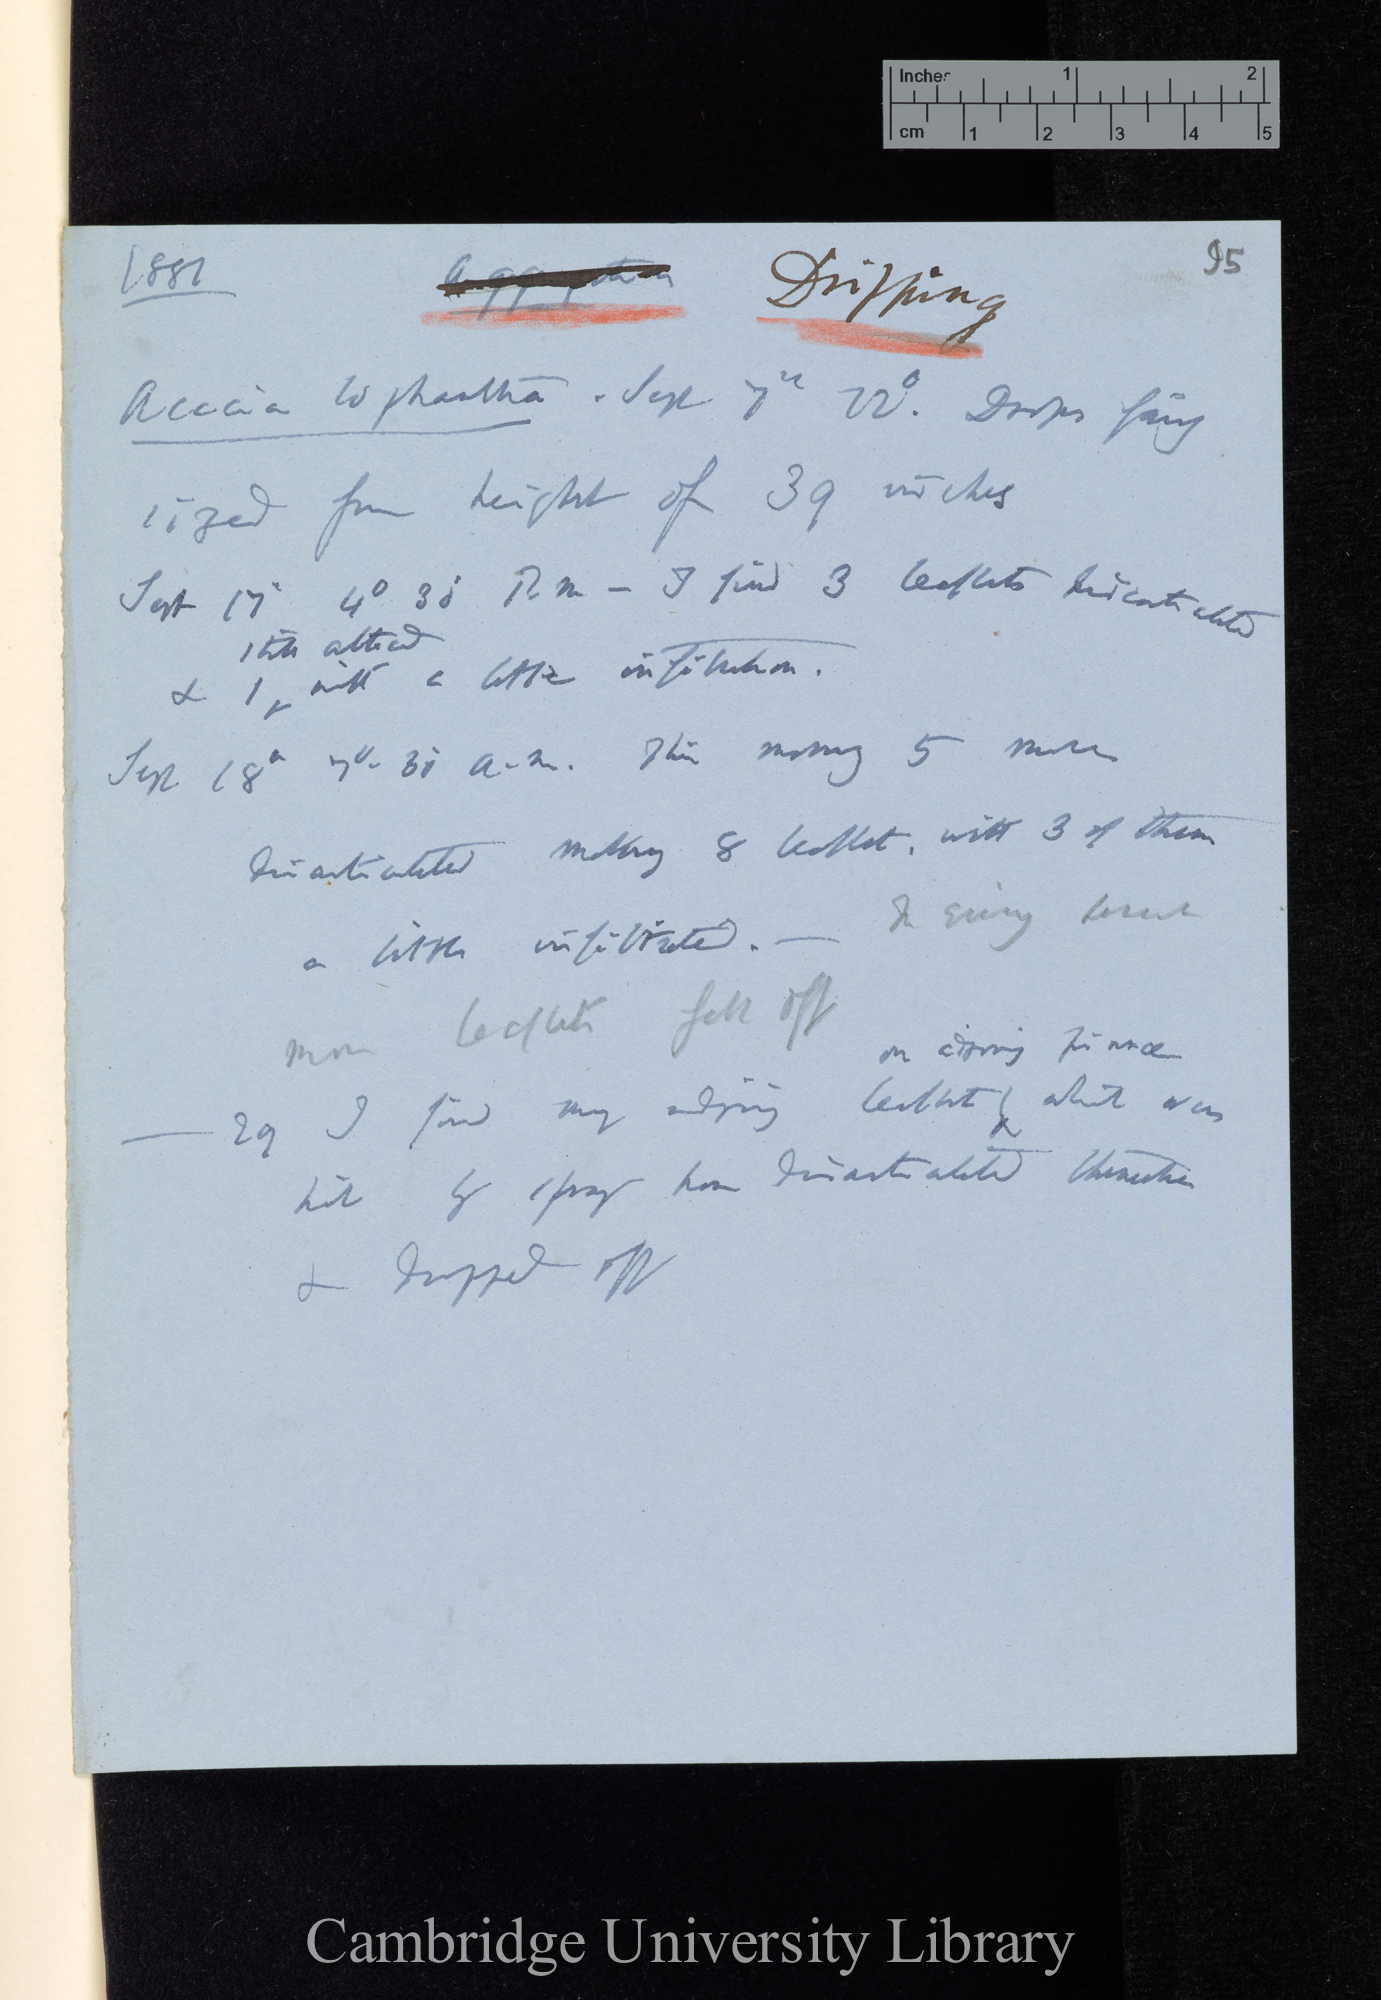 Inches 1 2
cm 1 2 3 4 5
1881 Dripping 95
Acacia lophantha. Sept 7th 72°. Drops fairly
sized from height of 39 inches
Sept 17 4° 30' P.m — I find 3 leaflets disarticulated
still attached
& 1, with a little infiltration.
Sept 18th 7° 30' a.m. This morning 5 more
disarticulated making 8 leaflets, with 3 of them
a little infiltrated. — In giving
more leaflets fell off
on
— 29 I find many adjoining leaflets which were
hit by spray have disarticulated themselves
& dropped off
Cambridge University Library